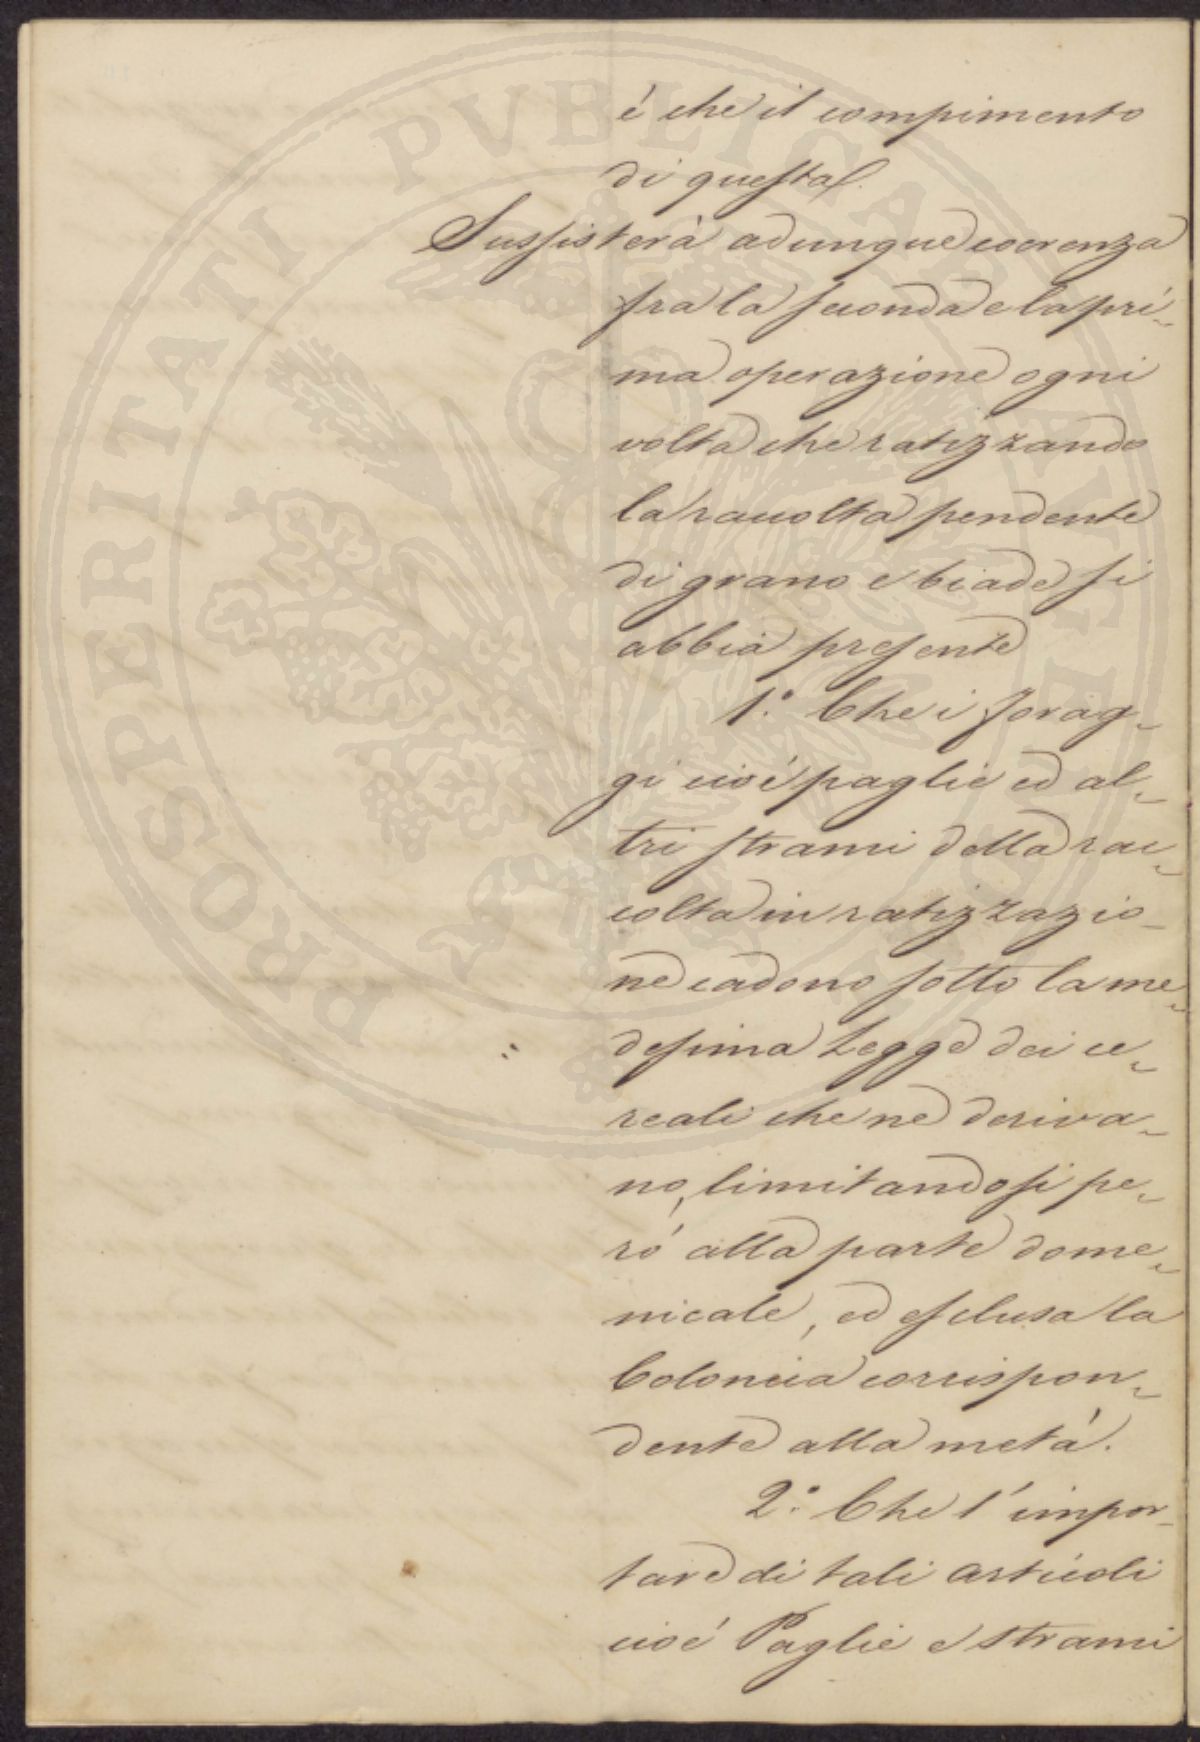 é che il compimento
di questa.
Sussisterà adunque coerenza
fra la seconda e la pri-
ma operazione ogni
volta che ratizzando
la raccolta pendente
di grano e biade si
abbia presente
1.° Che i forag-
gi cioé paglie ed al-
tri strami della rac-
colta in ratizzazio-
ne cadono sotto la me-
desima Legge dei ce-
reali che ne deriva-
no, limitandosi pe-
ró alla parte dome-
nicale, ed esclusa la
Colonica corrispon-
dente alla metá.
2.° Che l'impor-
tare di tali articoli
cioé Paglie e strami
PROSPERITATI PVBLICAE AVGENDAE